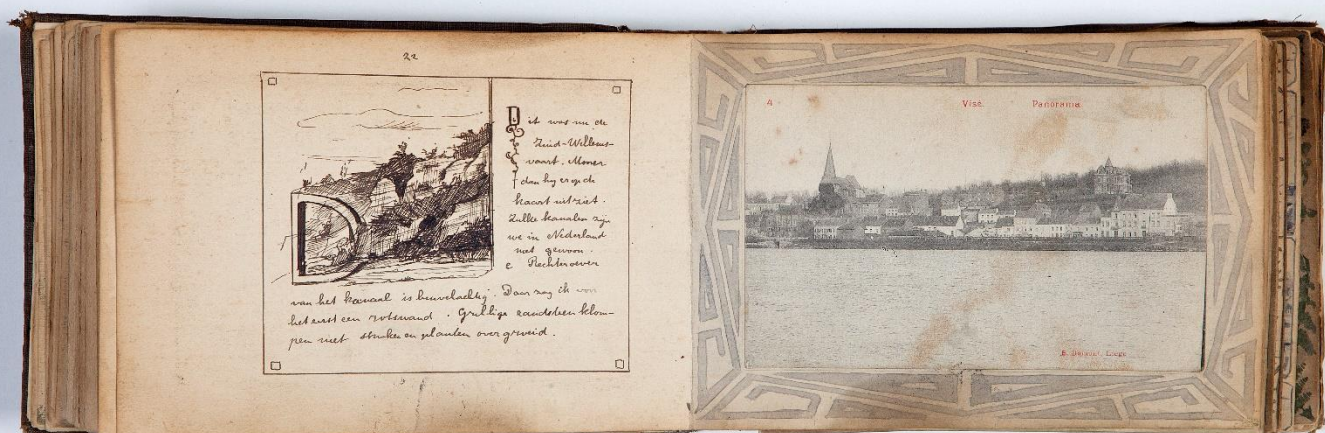 22
Dit was nu de
Zuid-Willems-
vaart. Mooier
dan hij er op de
kaart uitziet.
Zulke kanalen zijn
we in Nederland
niet gewoon.
De Rechteroever
van het kanaal is heuvelachtig. Daar zag ik voor
het eerst een rotswand. Grillige zandsteen klom-
pen met struiken en planten overgroeid.
4 Visé. Panorama
Liége